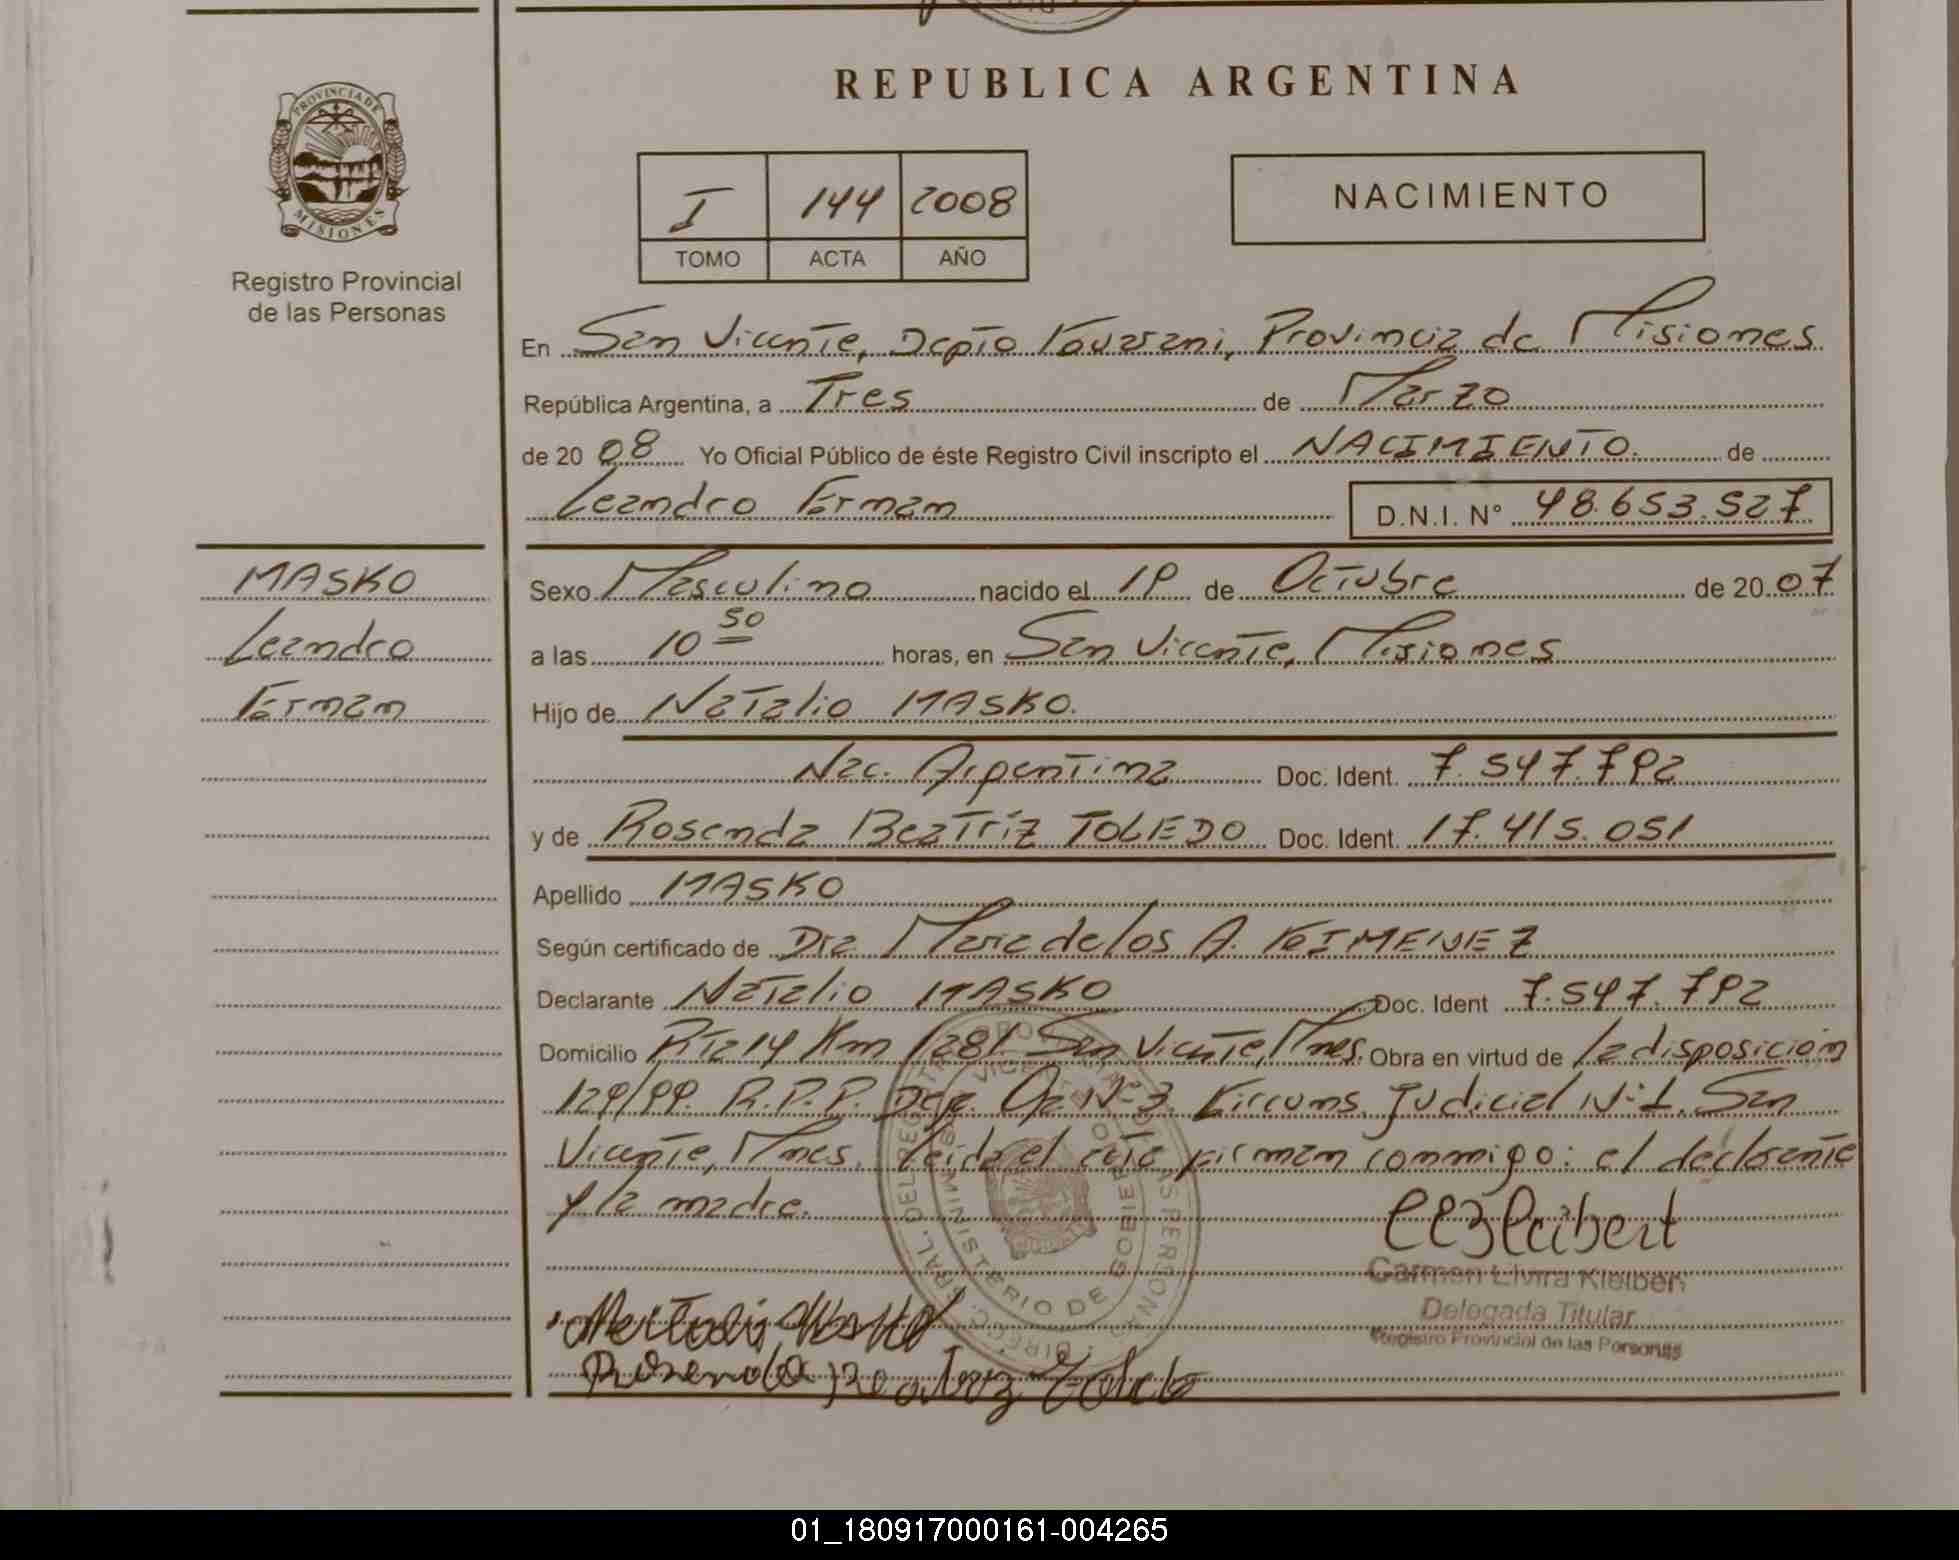 REPUBLICA ARGENTINA
PROVINCIA DE
MISIONES
Registro Provincial
de las Personas
I 144 2008
TOMO ACTA AÑO
NACIMIENTO
En San Vicente, Depto Guarani, Provincia de Misiones
República Argentina, a Tres de Marzo
de 20 08 Yo Oficial Público de éste Registro Civil inscripto el NACIMIENTO. de
Leandro German D.N.I. N° 48.653.527
MASKO
Leandro
German
Sexo Masculino nacido el 19 de Octubre de 20 07
a las 10 50 horas, en San Vicente, Misiones
Hijo de Natalio MASKO.
Nac. Argentina Doc. Ident. 7.547.792
y de Rosenda Beatríz TOLEDO Doc. Ident. 17.415.051
Apellido MASKO
Según certificado de Dra Maria de los A. GIMENEZ
Declarante Natalio MASKO Doc. Ident 7.547.792
Domicilio Rta 14 Km 1281 San Vicente, Mnes. Obra en virtud de la disposicion
129/99. R.P.P. Dep. N° 3. Circuns. Judicial N° 1. San
Vicente, Mnes. leida el acta, firman conmigo: el declarante
y la madre.
Carmen Elvira Kleibert
Delegada Titular
Registro Provincial de las Personas
MINISTERIO DE GOBIERNO
Rosenda Beatriz Toledo
01_180917000161-004265